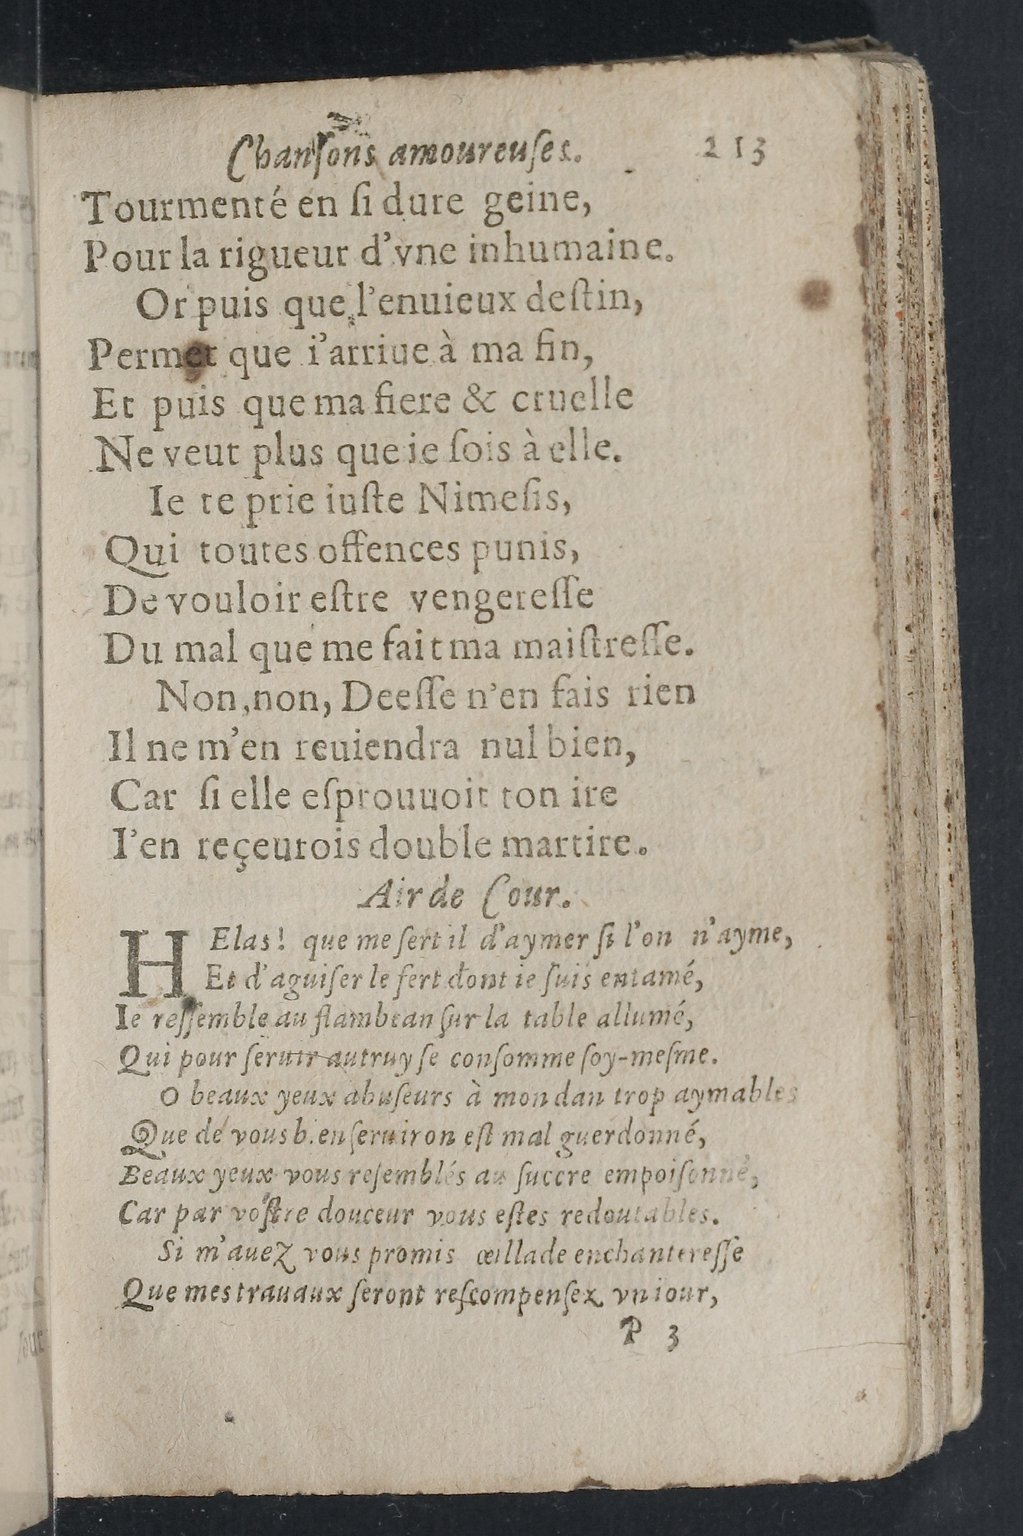 Chanſons amoureuſes. 213
Tourmenté en ſi dure geine,
Pour la rigueur d'vne inhumaine.
Or puis que l'enuieux deſtin,
Permet que i'arriue à ma fin,
Et puis que ma fiere & cruelle
Ne veut plus que ie ſois à elle.
Ie te prie iuſte Nimeſis,
Qui toutes offences punis,
De vouloir eſtre vengereſſe
Du mal que me fait ma maiſtreſſe.
Non, non, Deeſſe n'en fais rien
Il ne m'en reuiendra nul bien,
Car ſi elle eſprouuoit ton ire
I'en reçeurois double martire.
Air de Cour.
HElas! que me ſert il d'aymer ſi l'on n'ayme,
Et d'aguiſer le fert dont ie ſuis entamé,
Ie reſſemble au flambean ſur la table allumé,
Qui pour ſeruir autruy ſe conſomme ſoy-meſme.
O beaux yeux abuſeurs à mon dan trop aymables
Que de vous b.en ſeruir on eſt mal guerdonné,
Beaux yeux vous reſemblés au ſuccre empoiſonné,
Car par voſtre douceur vous eſtes redoutables.
Si m'auez vous promis œillade enchantereſſe
Que mes trauaux ſeront reſcompenſez vn iour,
P 3